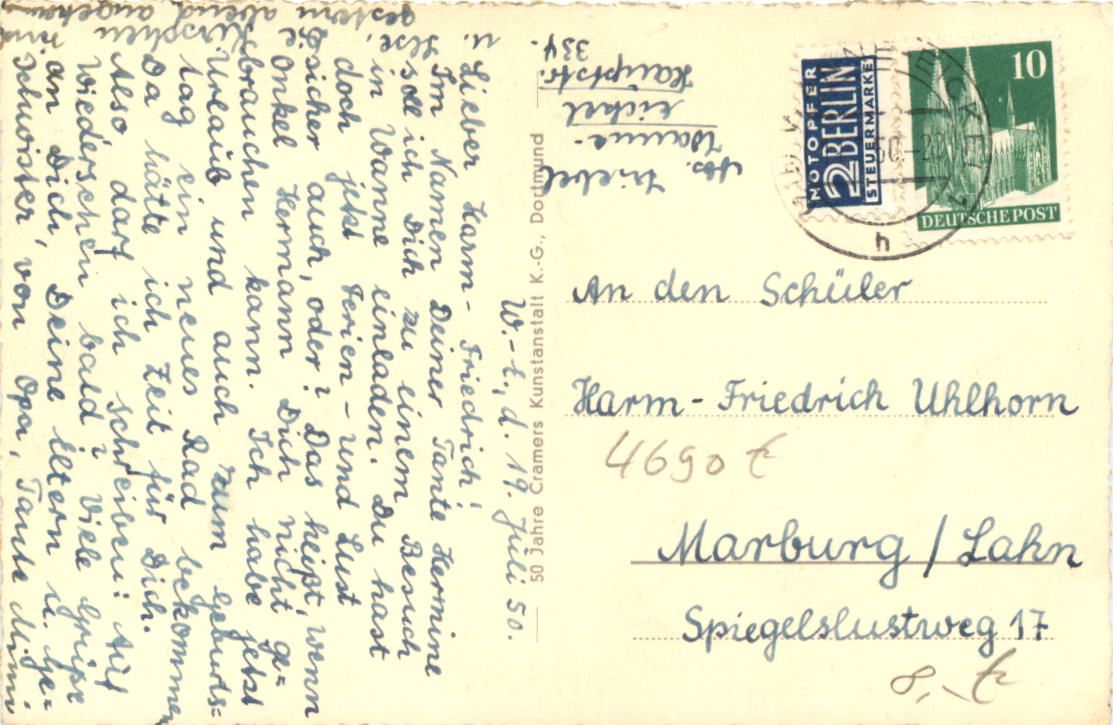 W.-E., d. 19. Juli 50.
Lieber Harm-Friedrich!
Im Namen Deiner Tante Hermine
soll ich Dich zu einem Besuch
in Wanne einladen. Du hast
doch jetzt Ferien - und Lust
sicher auch, oder? Das heißt, wenn
Onkel Hermann Dich nicht ge-
brauchen kann. Ich habe jetzt
Urlaub und auch zum Geburts-
tag ein neues Rad bekommen
Da hätte ich Zeit für Dich.
Also darf ich schreiben: Auf
Wiedersehen bald? Viele Grüße
an Dich, Deine Eltern u. Ge-
schwister von Opa, Tante
u. Ilse.
Kirschen
gestern abend
50 Jahre Cramers Kunstanstalt K.-G., Dortmund
Wanne-
Eickel
Hauptstr.
334.
NOTOPFER
2 BERLIN
STEUERMARKE
10
DEUTSCHE POST
h
An den Schüler
Harm-Friedrich Uhlhorn
4690 E
Marburg / Lahn
Spiegelslustweg 17
8,- E